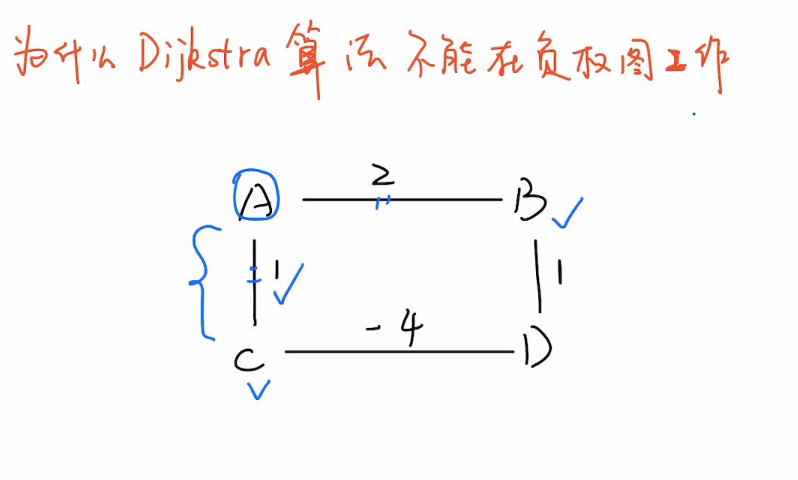 为什么Dijkstra算法不能在负权图工作
2
A B
1 1
-4
C D